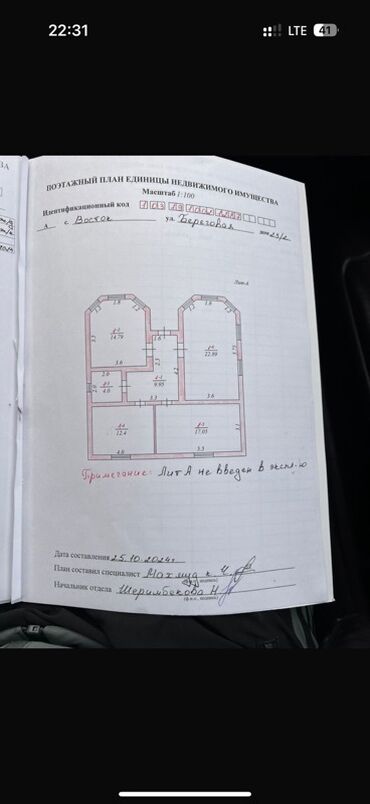 22:31
LTE 41
ПОЭТАЖНЫЙ ПЛАН ЕДИНИЦЫ НЕДВИЖИМОГО ИМУЩЕСТВА
Масштаб 1:100
Идентификационный код
с. Восток ул. Береговая дом 25/2
Лит А
1.8
1.8
14.79
1.6
22.89
5.75
3.6
2.5
4.2
2.0
4.0
9.95
3.3
3.6
12.4
17.05
3.1
4.0
5.5
Примечание: Лит А не введен в эксп-ю
Дата составления 25.10.2024г
План составил специалист Махмуд к. Ч.
(ф.и.о., подпись)
Начальник отдела Шеримбекова Н
(ф.и.о., подпись)